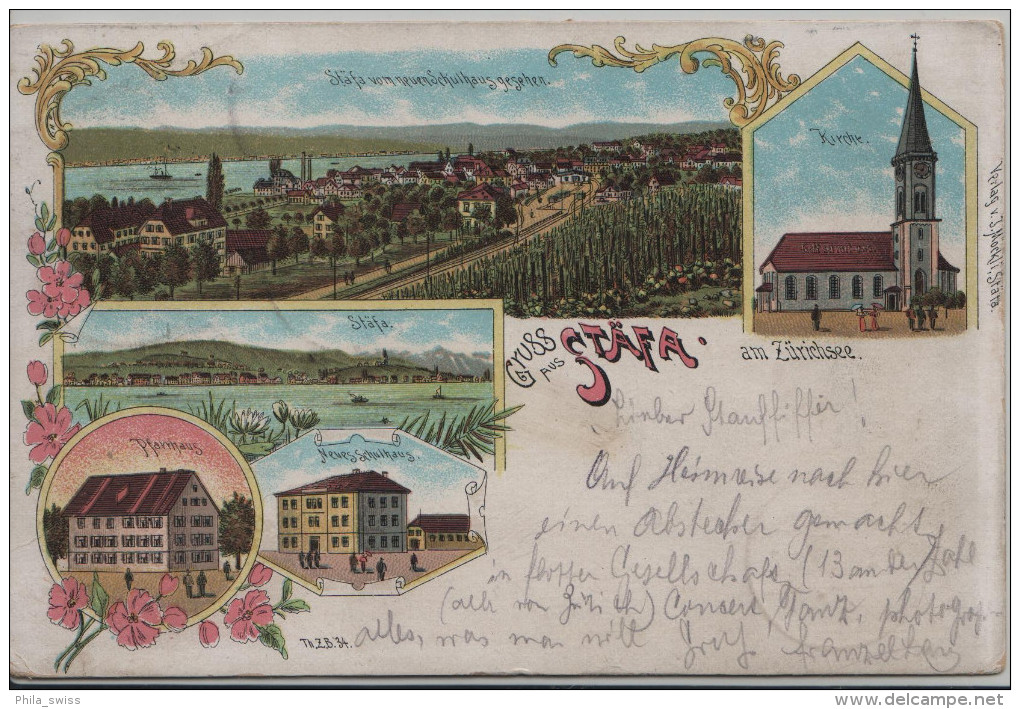 Stäfa vom neuen Schulhaus gesehen.
Kirche.
Verlag v. Stäfa.
Stäfa.
GRUSS AUS STÄFA.
am Zürichsee.
Pfarrhaus
Neues Schulhaus.
Th.Z.B. 34.
Lieber
Auf Heimreise nach hier
einen Abstecher gemacht
in flotter Gesellschaft (13 an der Zahl
(alle von Zürich) Concert, Tanz, photogr
alles, was man will
Phila_swiss
delcampe.net